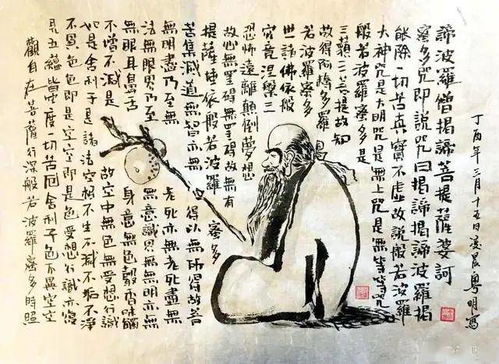 觀自在菩薩行深般若波羅蜜多時照
見五蘊皆空度一切苦厄舍利子色不異空空
不異色色即是空空即是色受想行識亦復
如是舍利子是諸法空相不生不滅不垢不淨
不增不減是故空中無色無受想行識
無眼耳鼻舌身意無色聲香味觸
法無眼界乃至無意識界無無明亦
無無明盡乃至無老死亦無老死盡無
苦集滅道無智亦無得以無所得故菩
提薩埵依般若波羅蜜多
故心無罣礙無罣礙故無有
恐怖遠離顛倒夢想
究竟涅槃三
世諸佛依般
若波羅蜜多
故得阿耨多羅
三藐三菩提故知
般若波羅蜜多是
大神咒是大明咒是無上咒是無等等咒
能除一切苦真實不虛故說般若波羅
蜜多咒即說咒曰揭諦揭諦波羅揭
諦波羅僧揭諦菩提薩婆訶
丁酉年三月十五日凌晨粵明寫